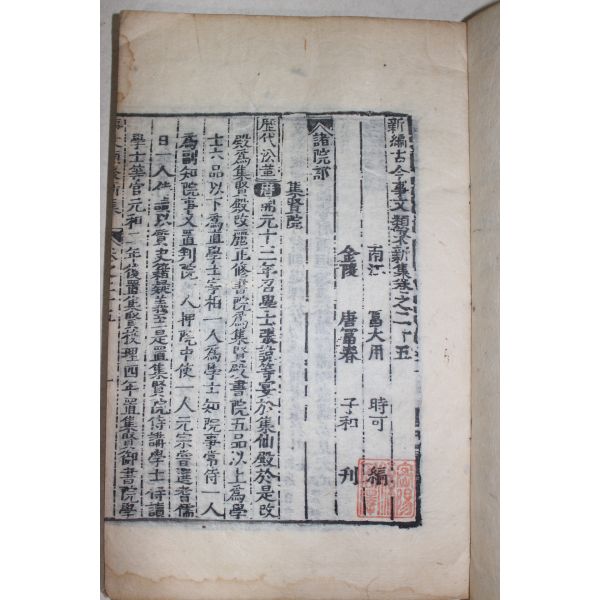 新編古今事文類聚新集卷之二十五
南江 冨大用 時可 編
金陵 唐冨春 子和 刊
諸院部
集賢院
歷代沿革 唐 開元十三年召學士張說等宴於集仙殿於是改
殿為集賢殿改麗正修書院為集賢殿書院五品以上為學
士六品以下為直學士宰相一人為學士知院事常侍一人
為副知院事又置判院一人押院中使一人元宗嘗選耆儒
日一人侍讀以質史籍疑義至是置集賢院侍講學士侍讀
學士等官元和二年後置集賢校理四年置集賢御書院學